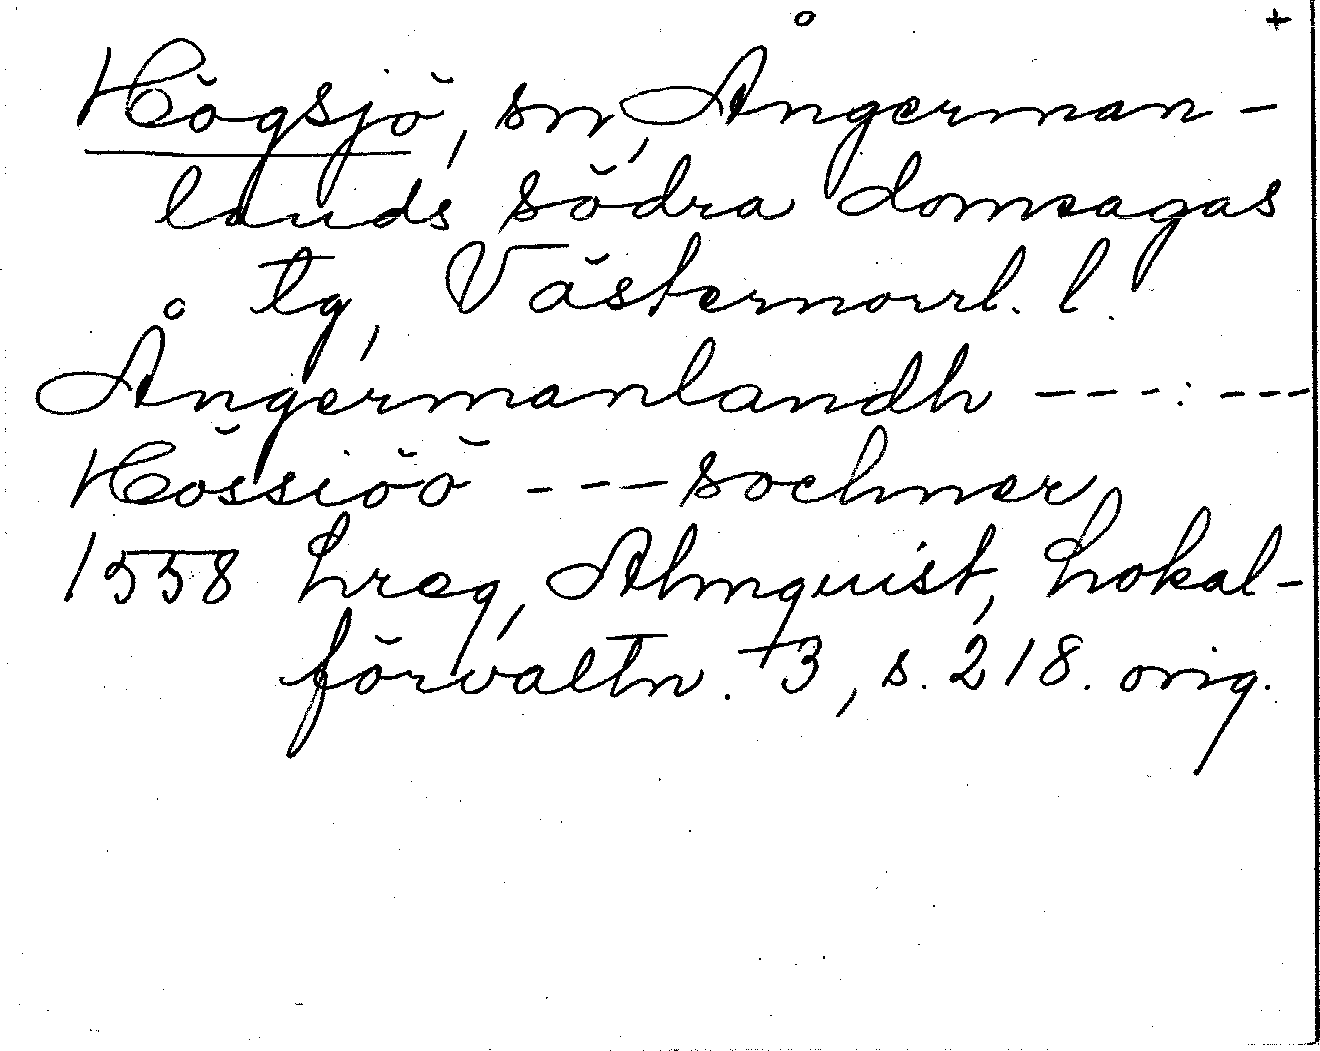 +
Högsjö, sn, Ångerman-
lands södra domsagas
tg, Västernorrl. l.
Ångermanlandh ---:---
Hössiöö --- sochner
1558 hreg, Almquist, Lokal-
förvaltn. 3, s. 218. orig.